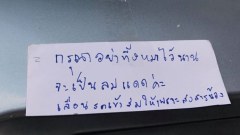 = กรุณาอย่าทิ้งหมาไว้นาน
จะเป็นลมแดดค่ะ
เลื่อนรถเข้าร่มให้เพราะสงสารน้อง